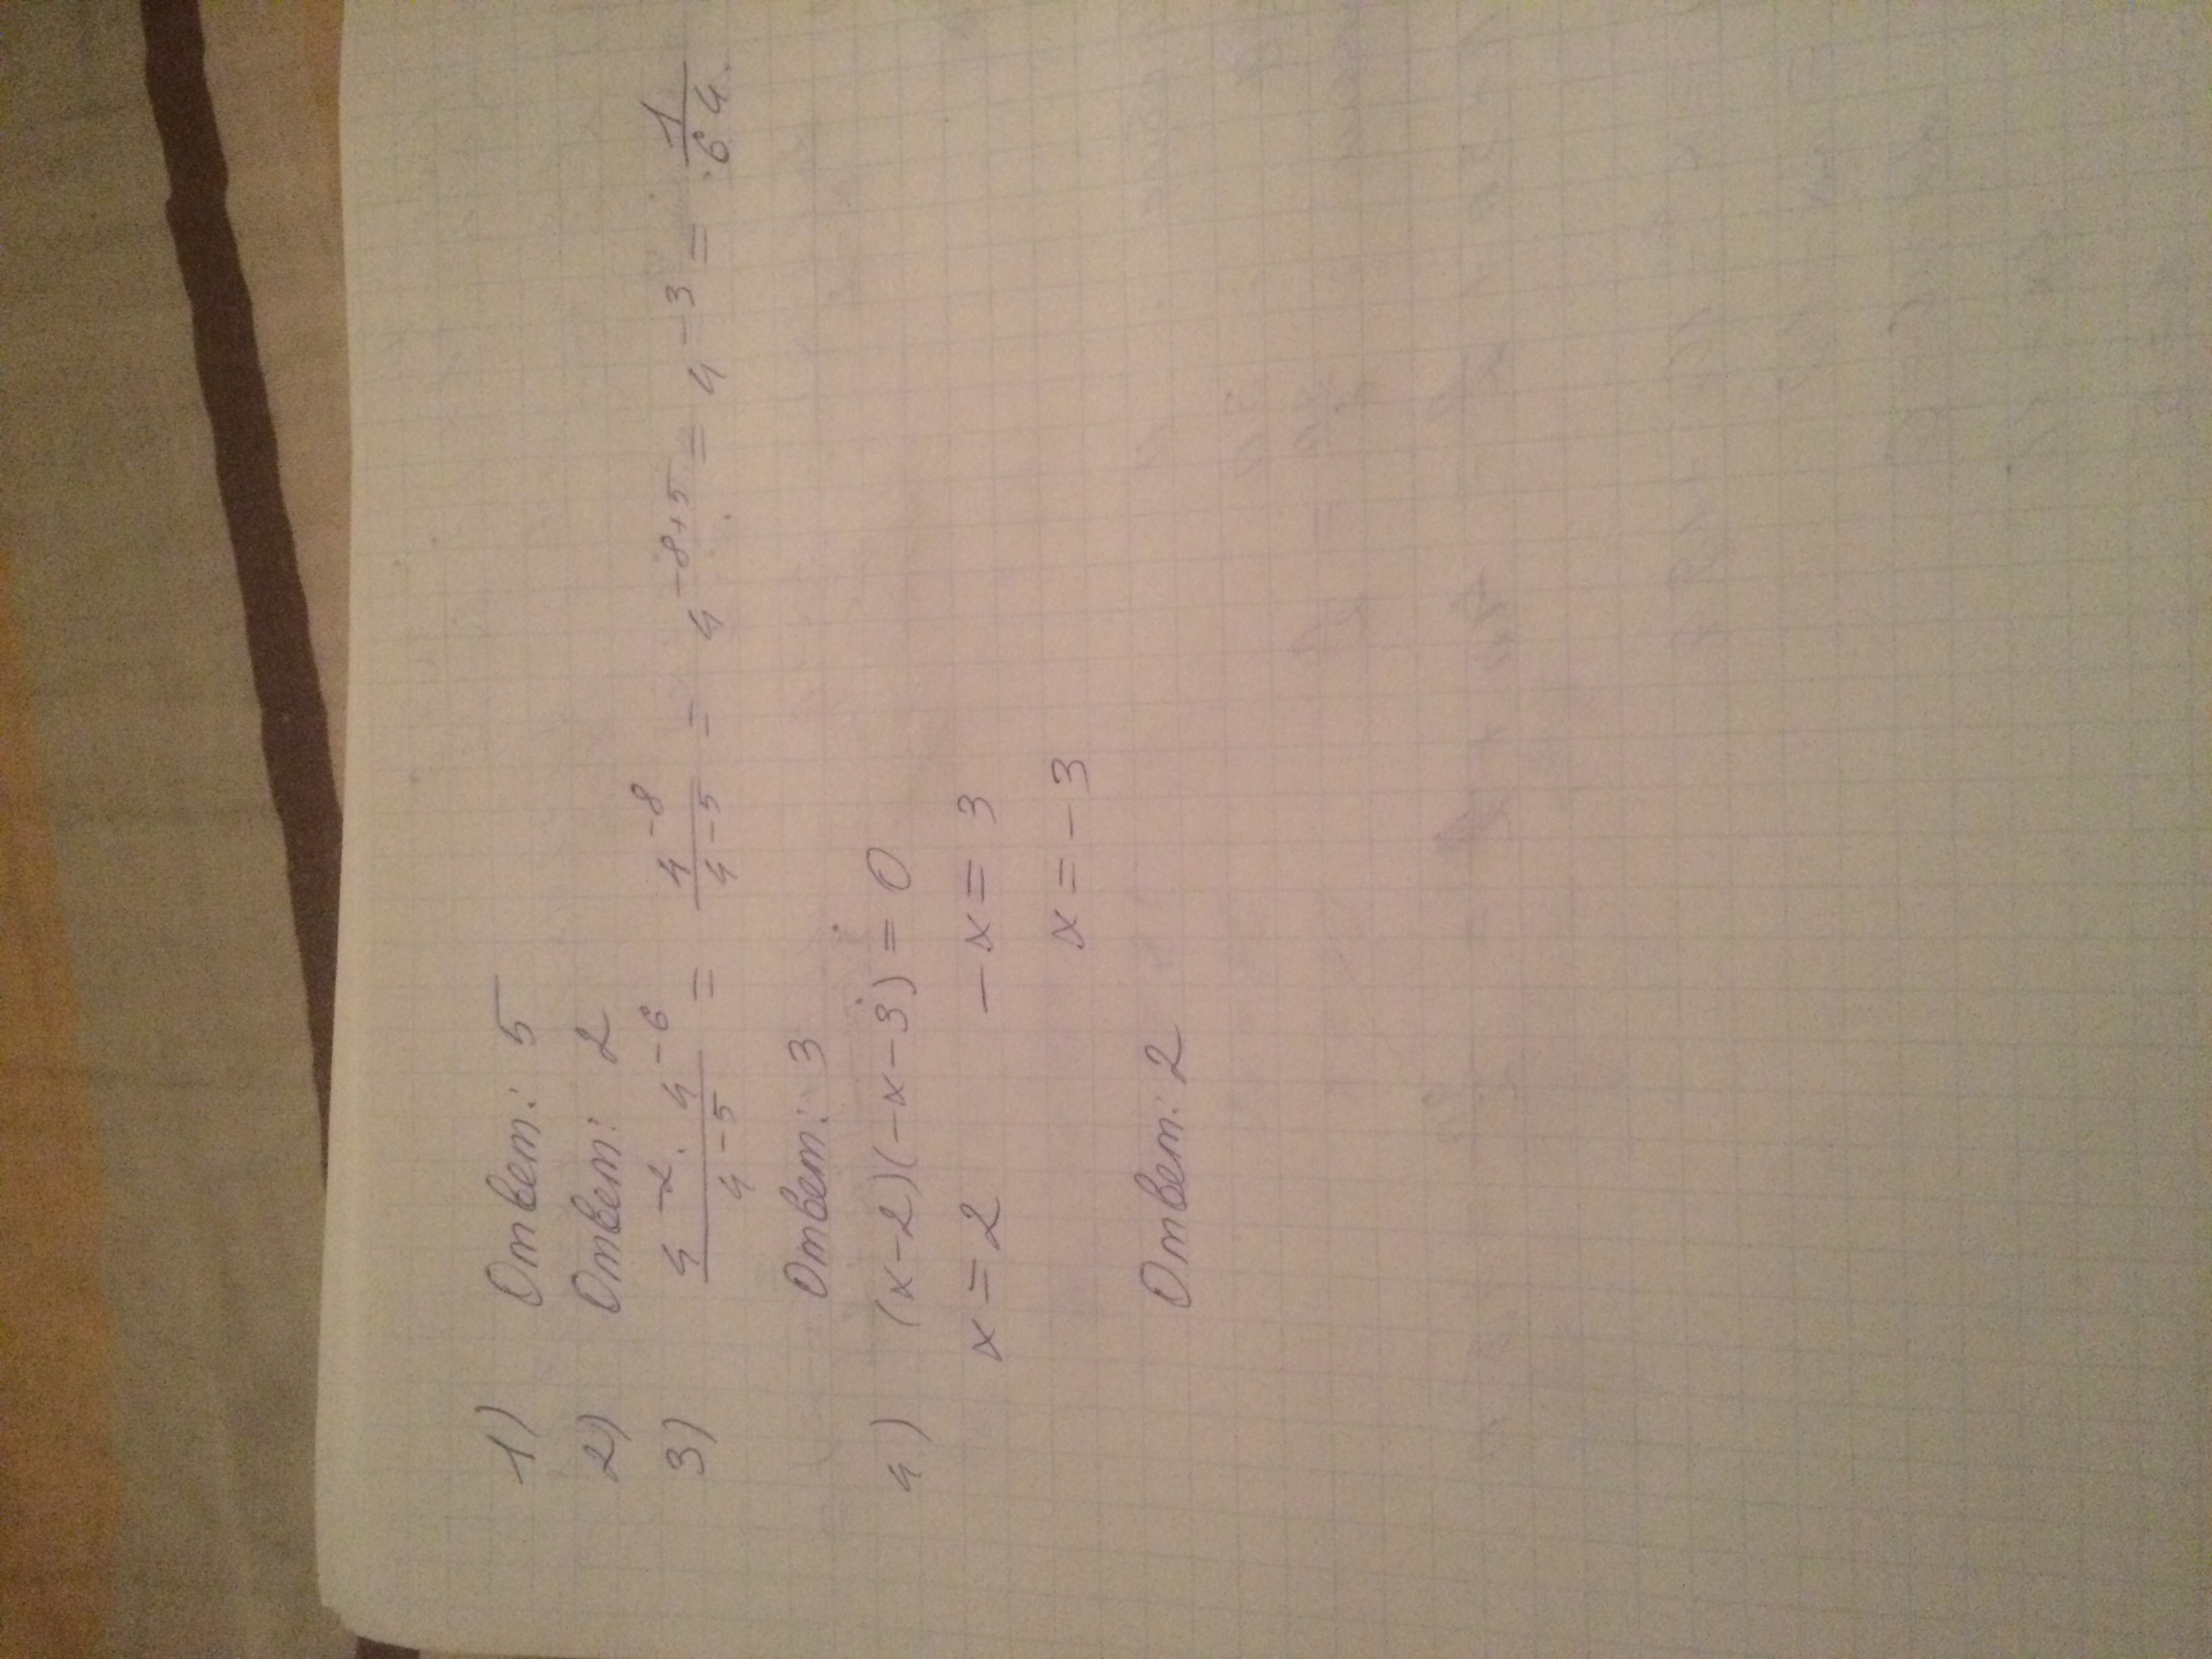 1) Ответ: 5
2) Ответ: 2
3) \frac{4^{-2} \cdot 4^{-6}}{4^{-5}} = \frac{4^{-8}}{4^{-5}} = 4^{-8+5} = 4^{-3} = \frac{1}{64}.
Ответ: 3
4) (x-2)(-x-3)=0
x=2 -x=3
x=-3
Ответ: 2